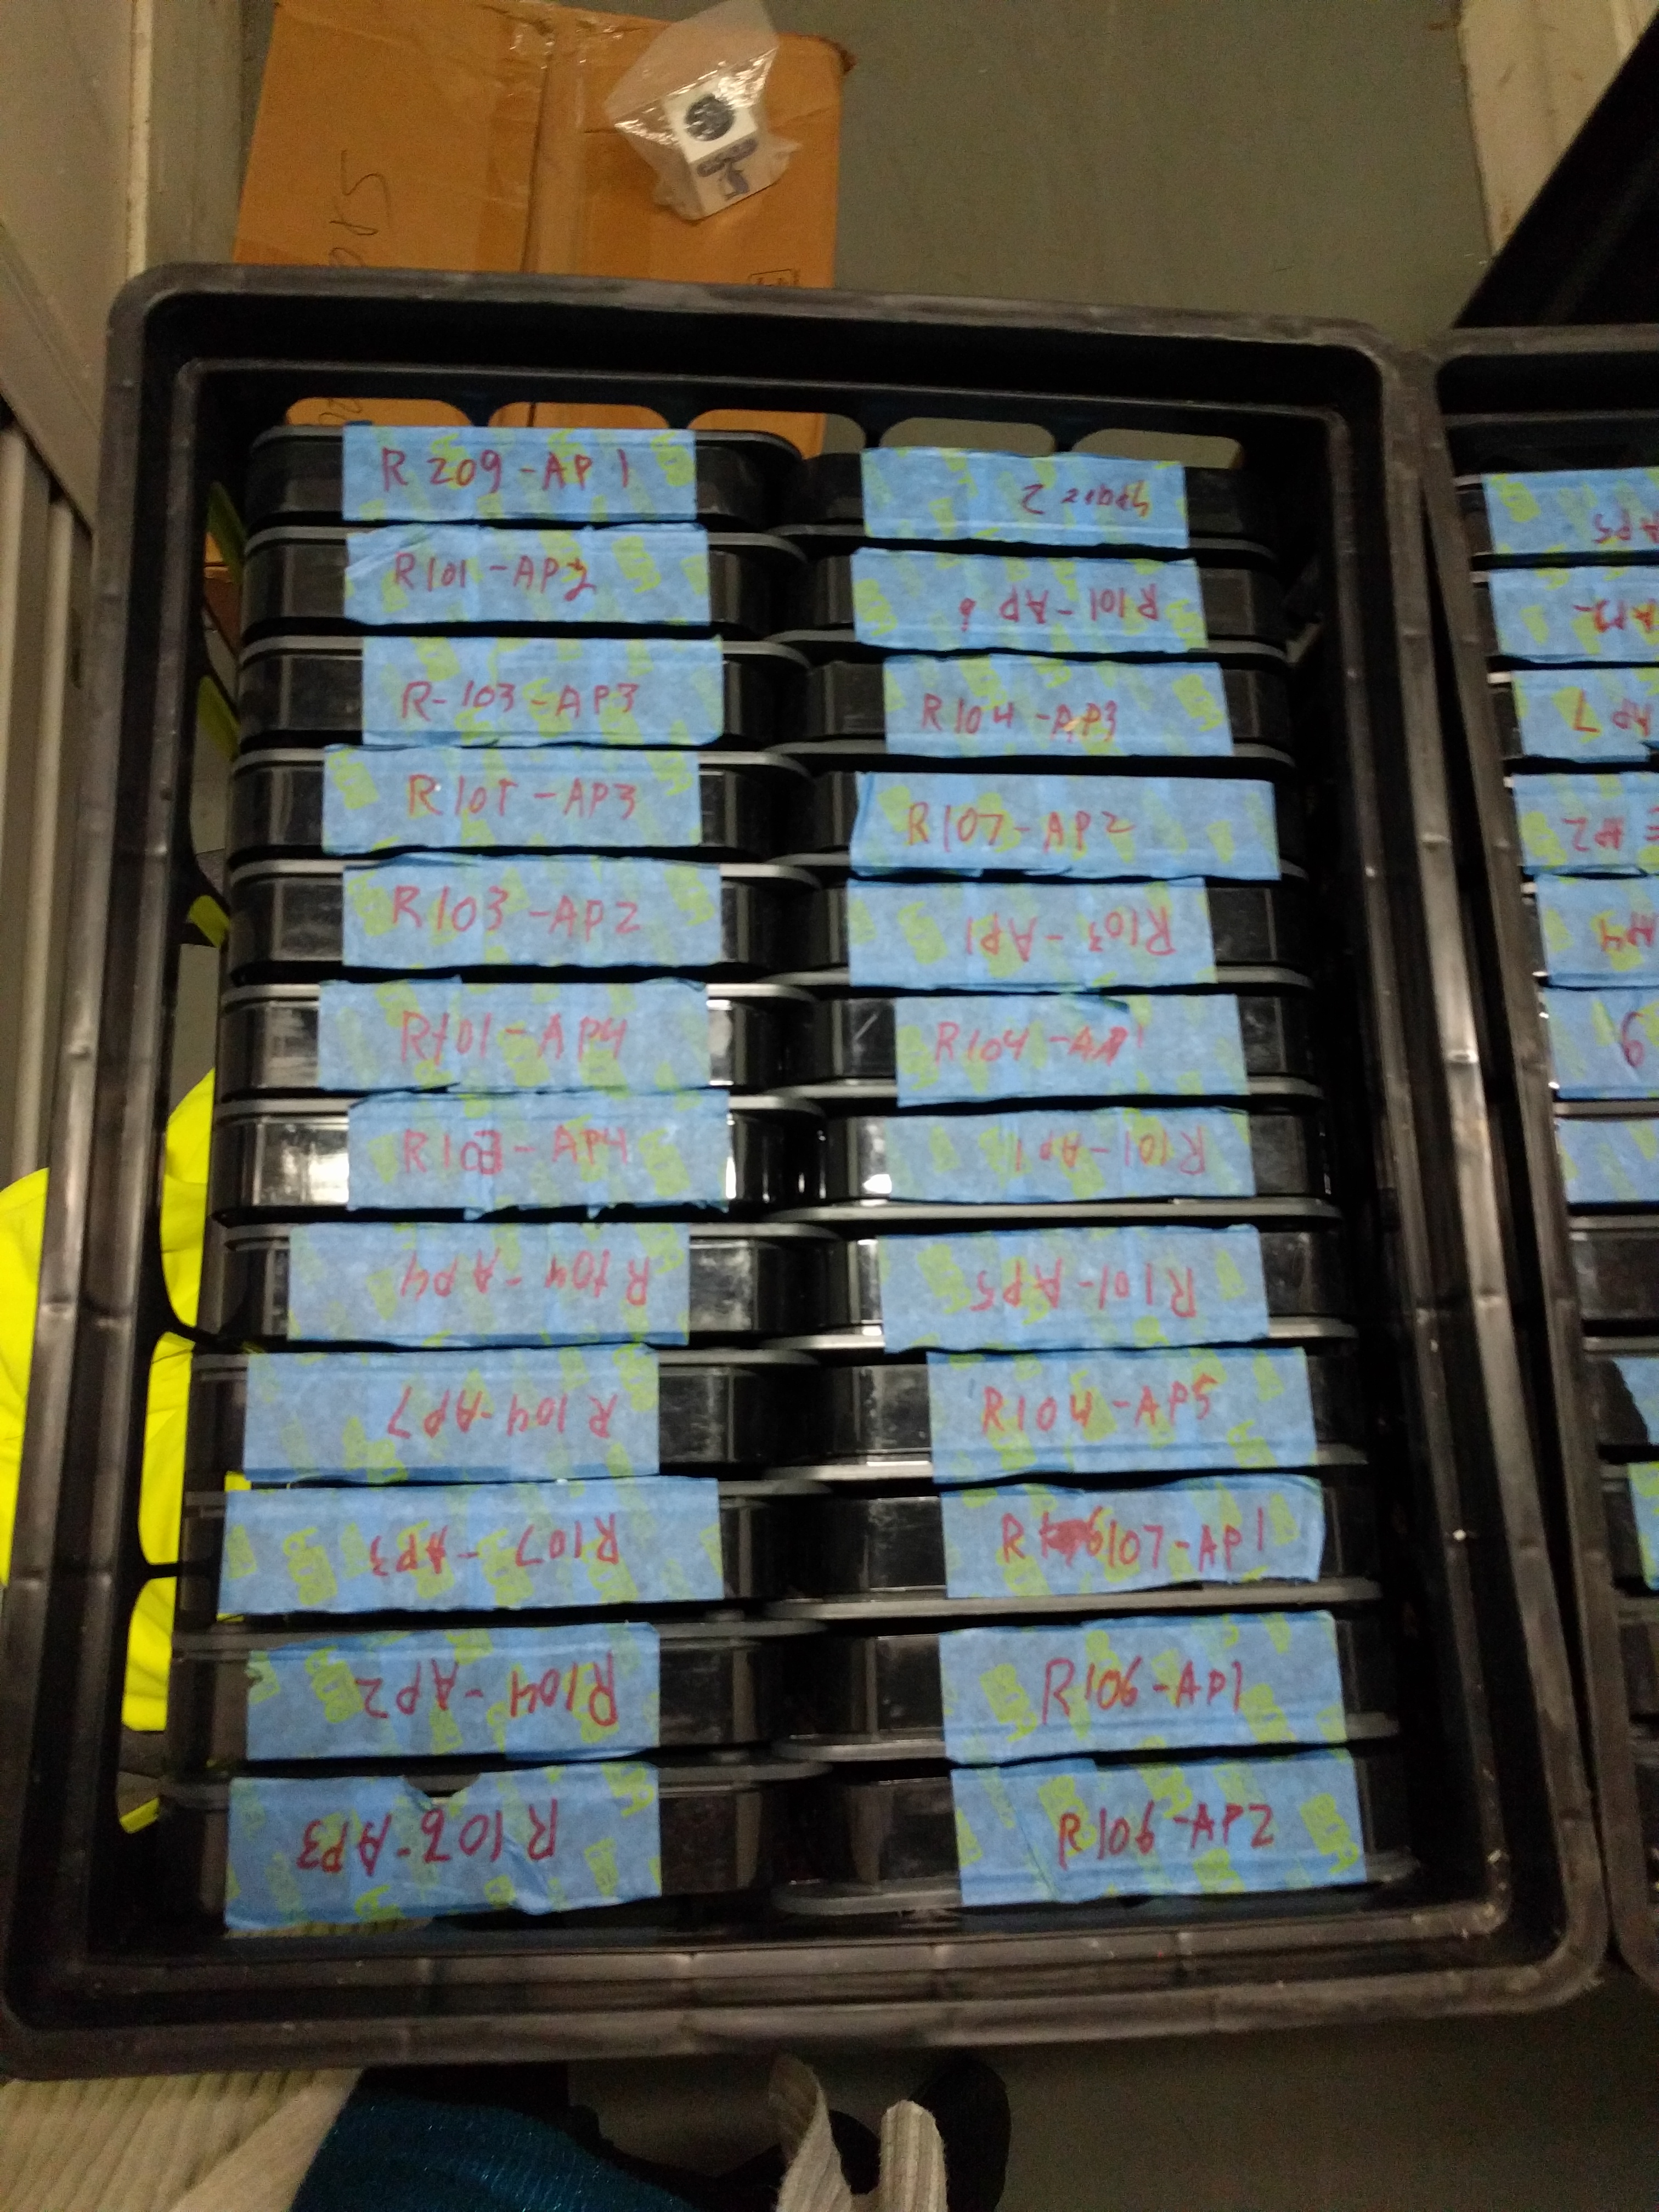 R209-AP1
R101-AP2
R-103-AP3
R101-AP3
R103-AP2
R101-AP4
R103-AP4
R104-AP4
R104-AP7
R107-AP3
R104-AP2
R106-AP3
Spare 2
R101-AP6
R104-AP3
R107-AP2
R103-AP1
R104-AP1
R101-AP1
R101-AP5
R104-AP5
R107-AP1
R106-AP1
R106-AP2
AP5
AP7
AP2
AP4